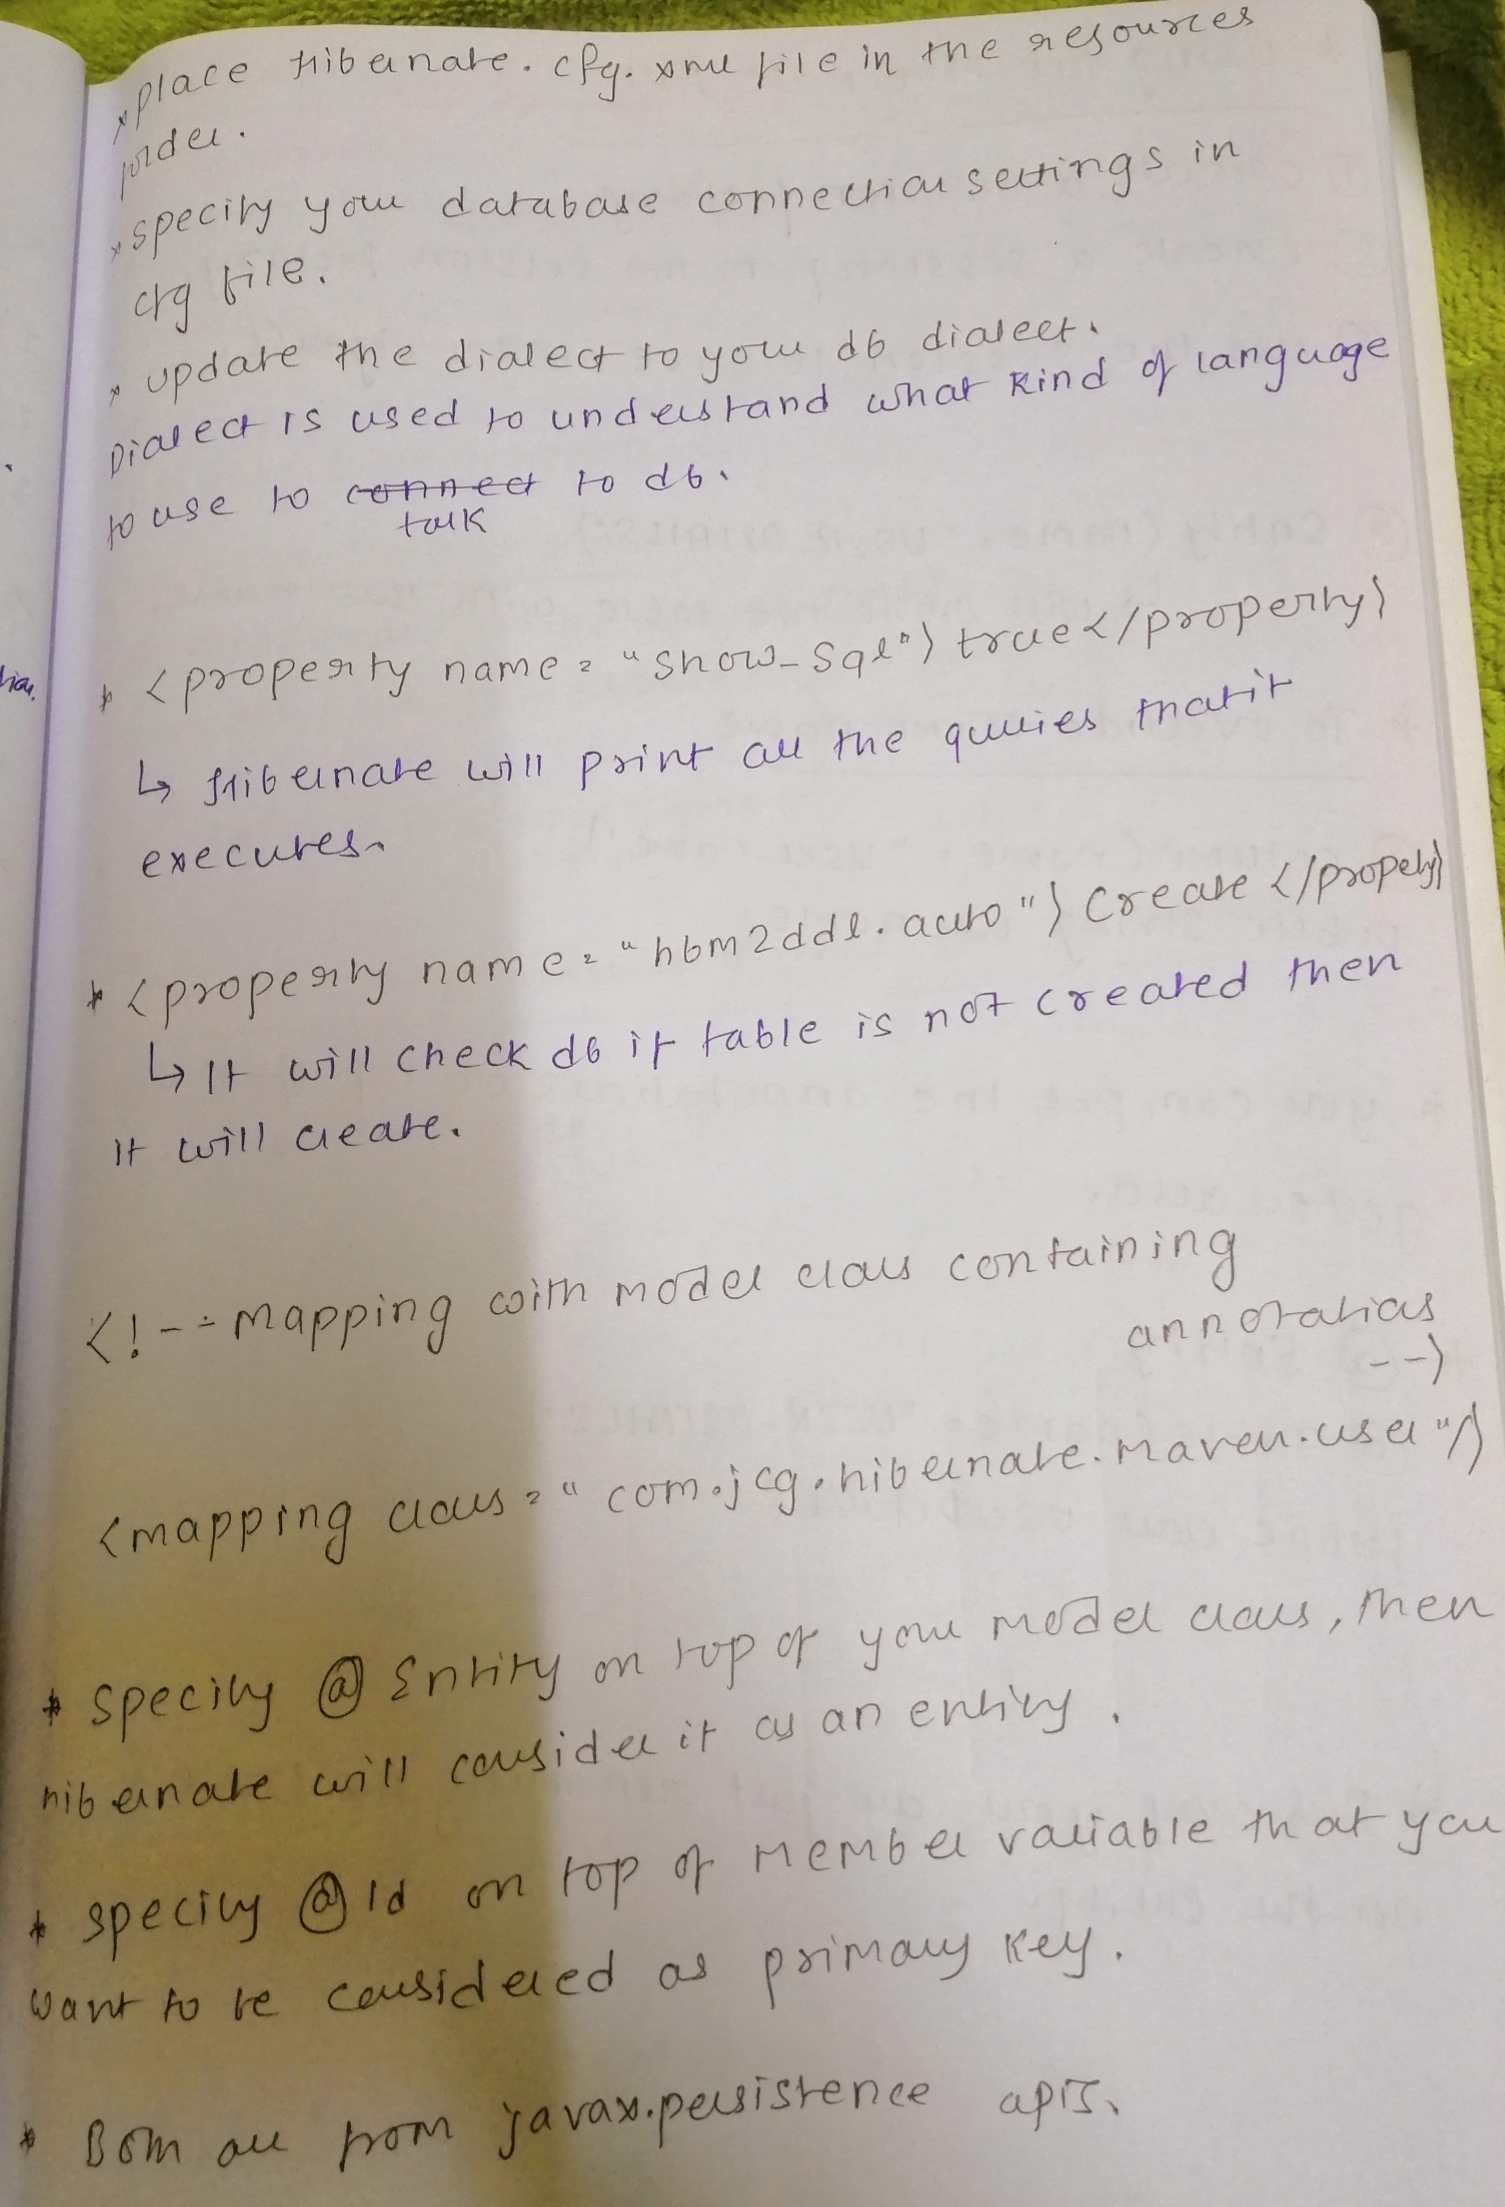 * place Hibernate.cfg.xml file in the resources
folder.
* specify your database connection settings in
cfg file.
* update the dialect to your db dialect.
Dialect is used to understand what kind of language
to use to connect to db.
talk
* <property name="show_sql">true</property>
↳ Hibernate will print all the queries that it
executes.
* <property name="hbm2ddl.auto">create</property>
↳ It will check db if table is not created then
it will create.
<!-- Mapping with model class containing
annotations
-->
<mapping class="com.jcg.hibernate.maven.user"/>
* specify @Entity on top of your model class, then
hibernate will consider it as an entity.
* specify @Id on top of member variable that you
want to be considered as primary key.
* Both are from javax.persistence apis.